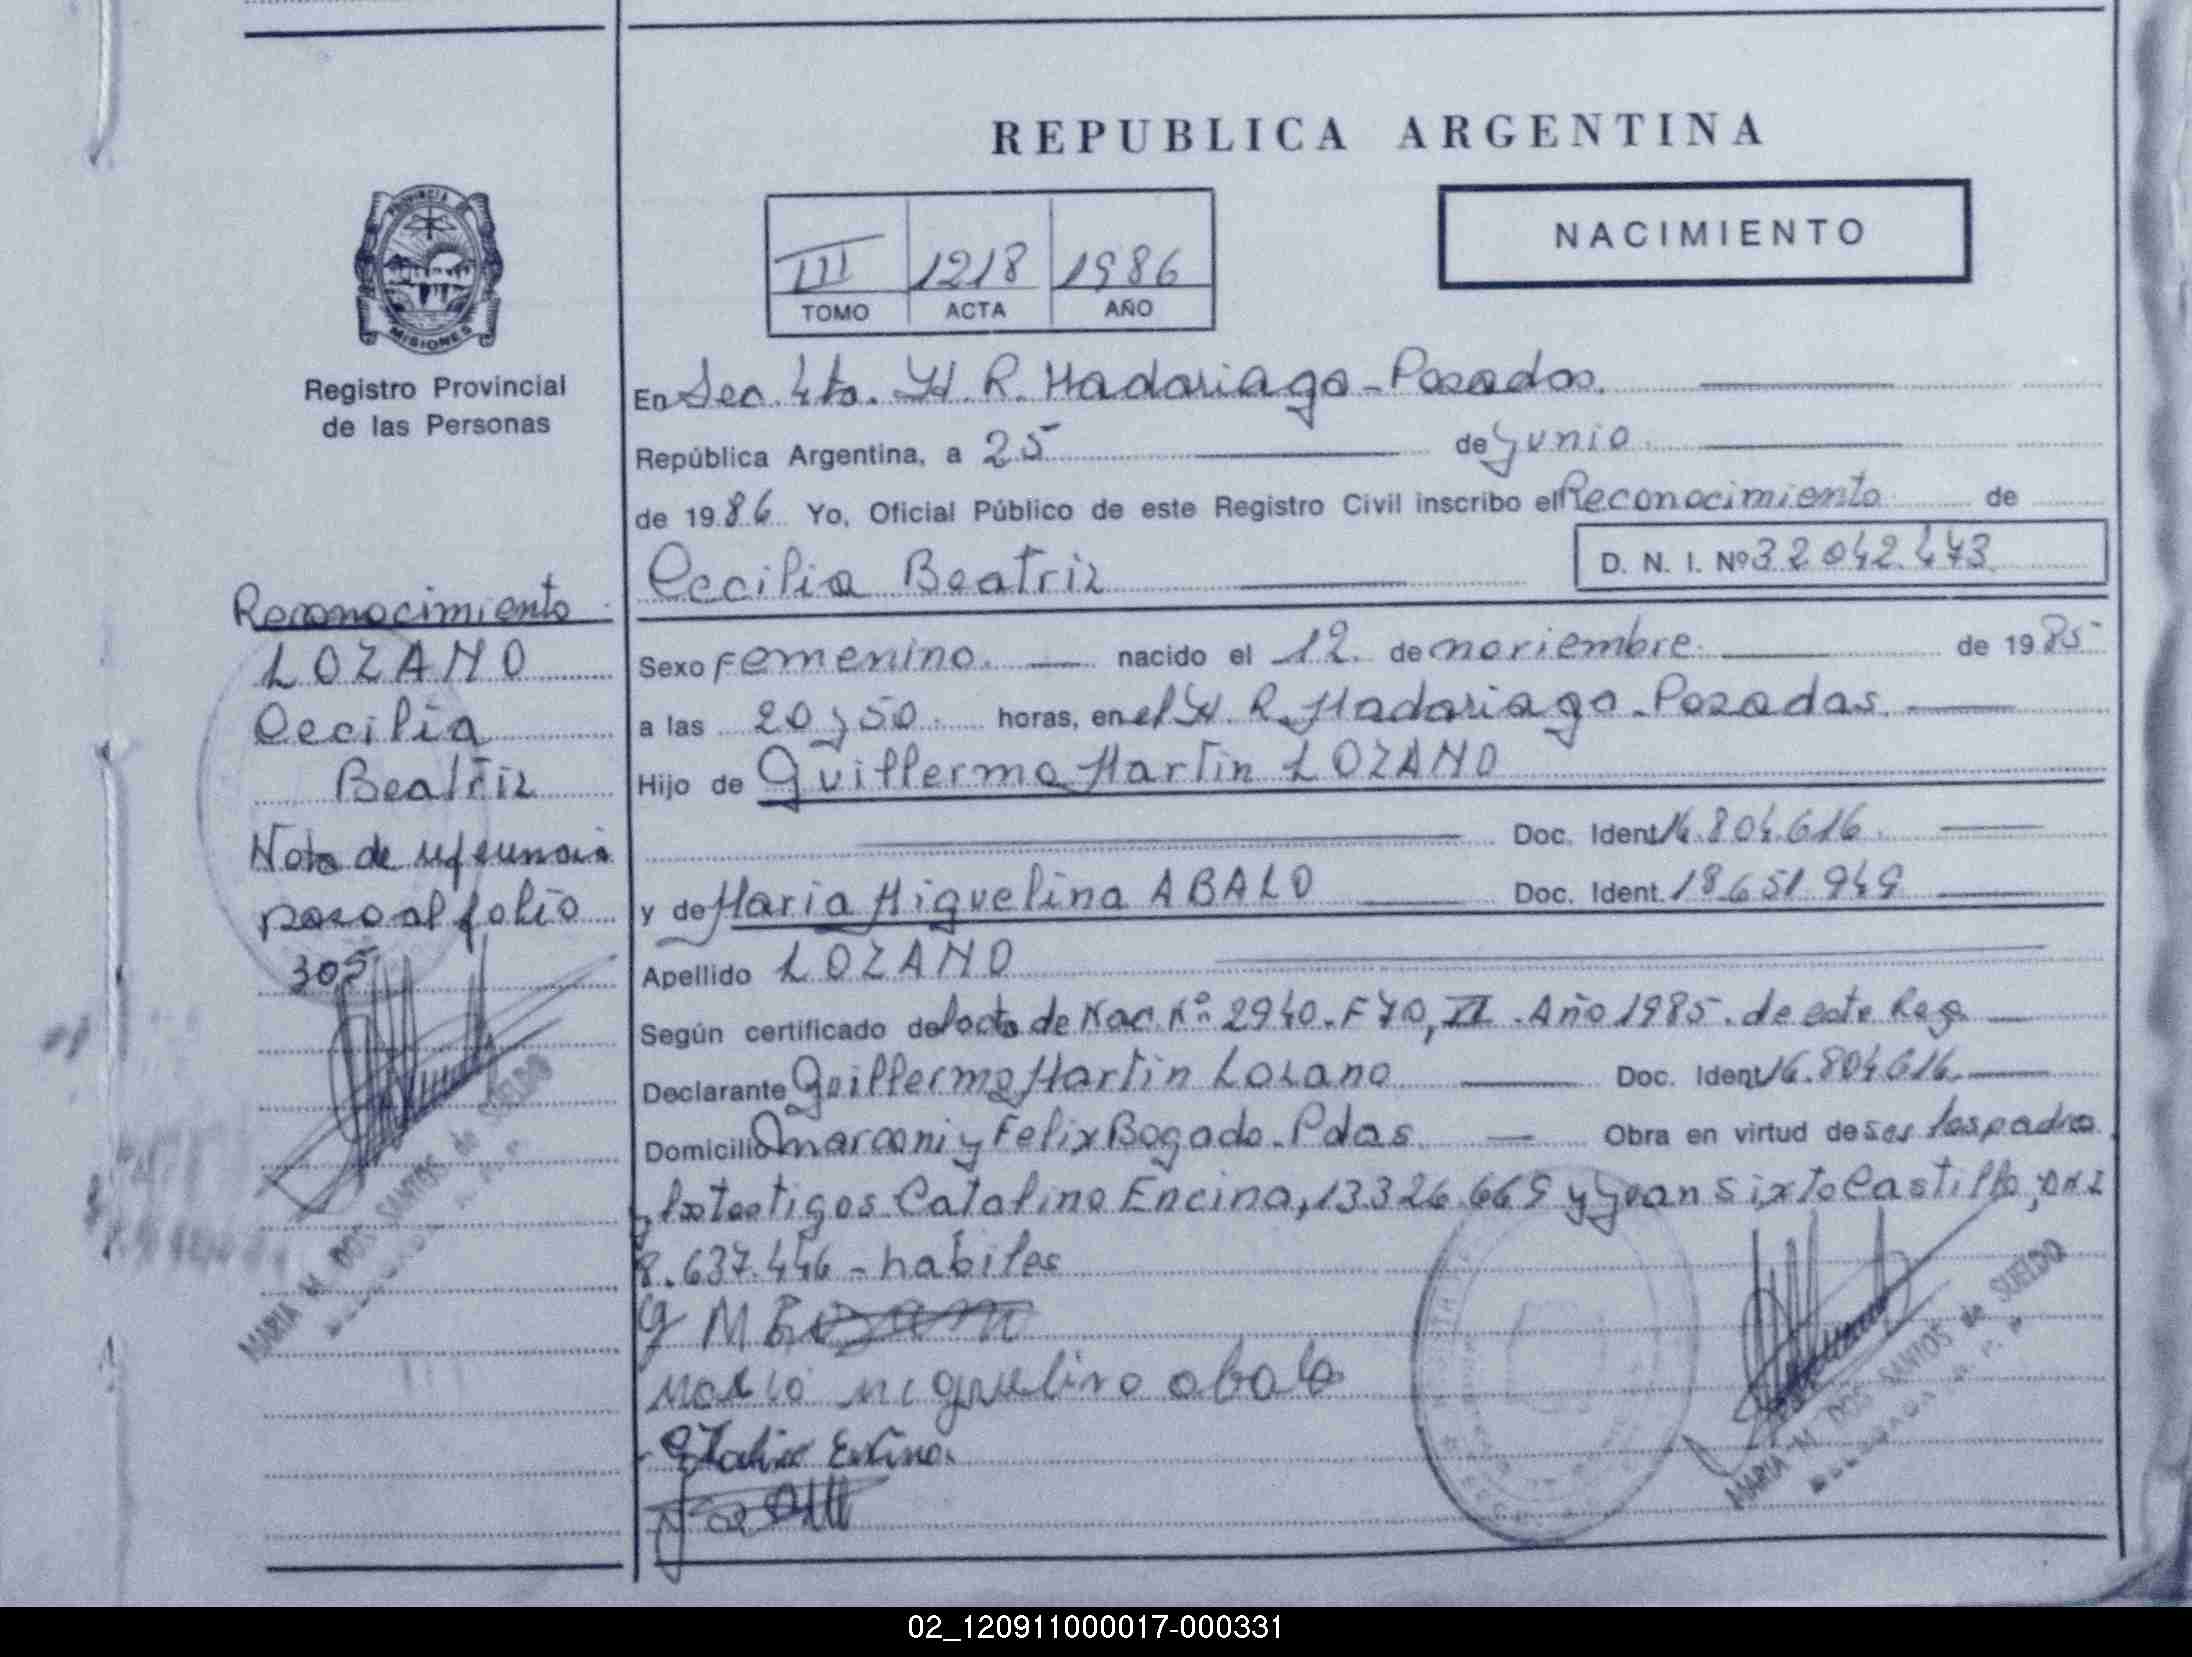 REPUBLICA ARGENTINA
NACIMIENTO
III 1218 1986
TOMO ACTA AÑO
PROVINCIA DE
MISIONES
Registro Provincial
de las Personas
En Sec. 4ta. H. R. Madariaga - Posadas.
República Argentina, a 25 de Junio
de 1986 Yo, Oficial Público de este Registro Civil inscribo el Reconocimiento de
Cecilia Beatriz D. N. I. Nº 32 042.473
Sexo Femenino. nacido el 12 de noviembre de 1985
a las 20 y 50 horas, en el H. R. Madariaga - Posadas.
Hijo de Guillermo Martin LOZANO
Doc. Ident. 16.804.616
y de Maria Miguelina ABALO Doc. Ident. 18.651.949
Apellido LOZANO
Según certificado del acta de Nac. Nº 2940 - F 70, VI. Año 1985. de este Reg.
Declarante Guillermo Martin Lozano Doc. Ident. 16.804.616
Domicilio marconi y Felix Bogado - Pdas Obra en virtud de ser los padres
y los testigos Catalino Encina, 13.326.669 y Juan Sixto Castillo, DNI
8.637.446 - habiles
maria miguelina abalo
Encina
MARIA M. DOS SANTOS de SUELDO
DELEGADA
Reconocimiento
LOZANO
Cecilia
Beatriz
Nota de referencia
paso al folio
305
MARIA M. DOS SANTOS de SUELDO
02_120911000017-000331